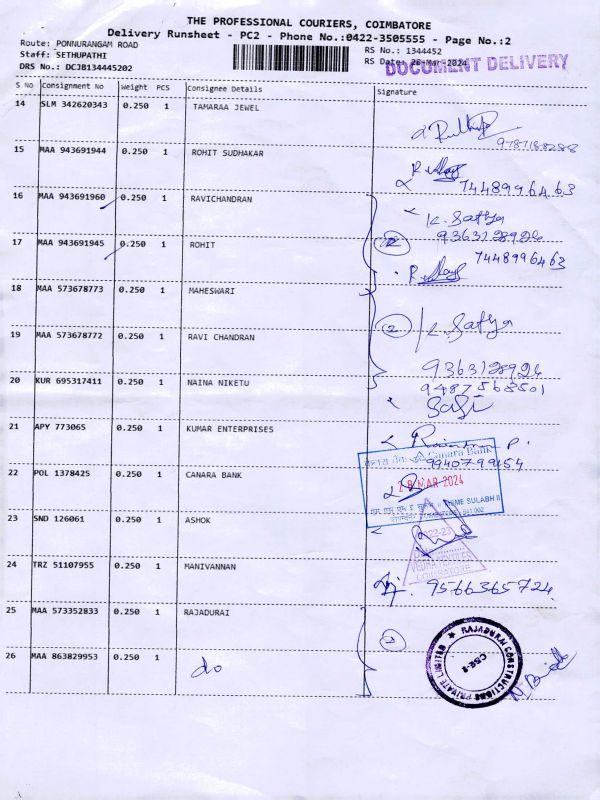 THE PROFESSIONAL COURIERS, COIMBATORE
Delivery Runsheet - PC2 - Phone No.:0422-3505555 - Page No.:2
Route: PONNURANGAM ROAD RS No.: 1344452
Staff: SETHUPATHI RS Date: 26-Mar-2024
DRS No.: DCJB134445202 DOCUMENT DELIVERY
S No Consignment No Weight PCS Consignee Details Signature
14 SLM 342620343 0.250 1 TAMARAA JEWEL
15 MAA 943691944 0.250 1 ROHIT SUDHAKAR
7448996463
16 MAA 943691960 0.250 1 RAVICHANDRAN
K. Sathya
9363128926
17 MAA 943691945 0.250 1 ROHIT
7448996463
18 MAA 573678773 0.250 1 MAHESWARI
2 K. Sathya
19 MAA 573678772 0.250 1 RAVI CHANDRAN
9363128926
20 KUR 695317411 0.250 1 NAINA NIKETU
9487563501
Sasi
21 APY 773065 0.250 1 KUMAR ENTERPRISES
Canara Bank
22 POL 1378425 0.250 1 CANARA BANK
MAR 2024
PRIME SULABH II
23 SND 126061 0.250 1 ASHOK
COIMBATORE
24 TRZ 51107955 0.250 1 MANIVANNAN
9566365724
25 MAA 573352833 0.250 1 RAJADURAI
RAJADURAI CONSTRUCTIONS PRIVATE LIMITED
CBE-2
26 MAA 863829953 0.250 1 do